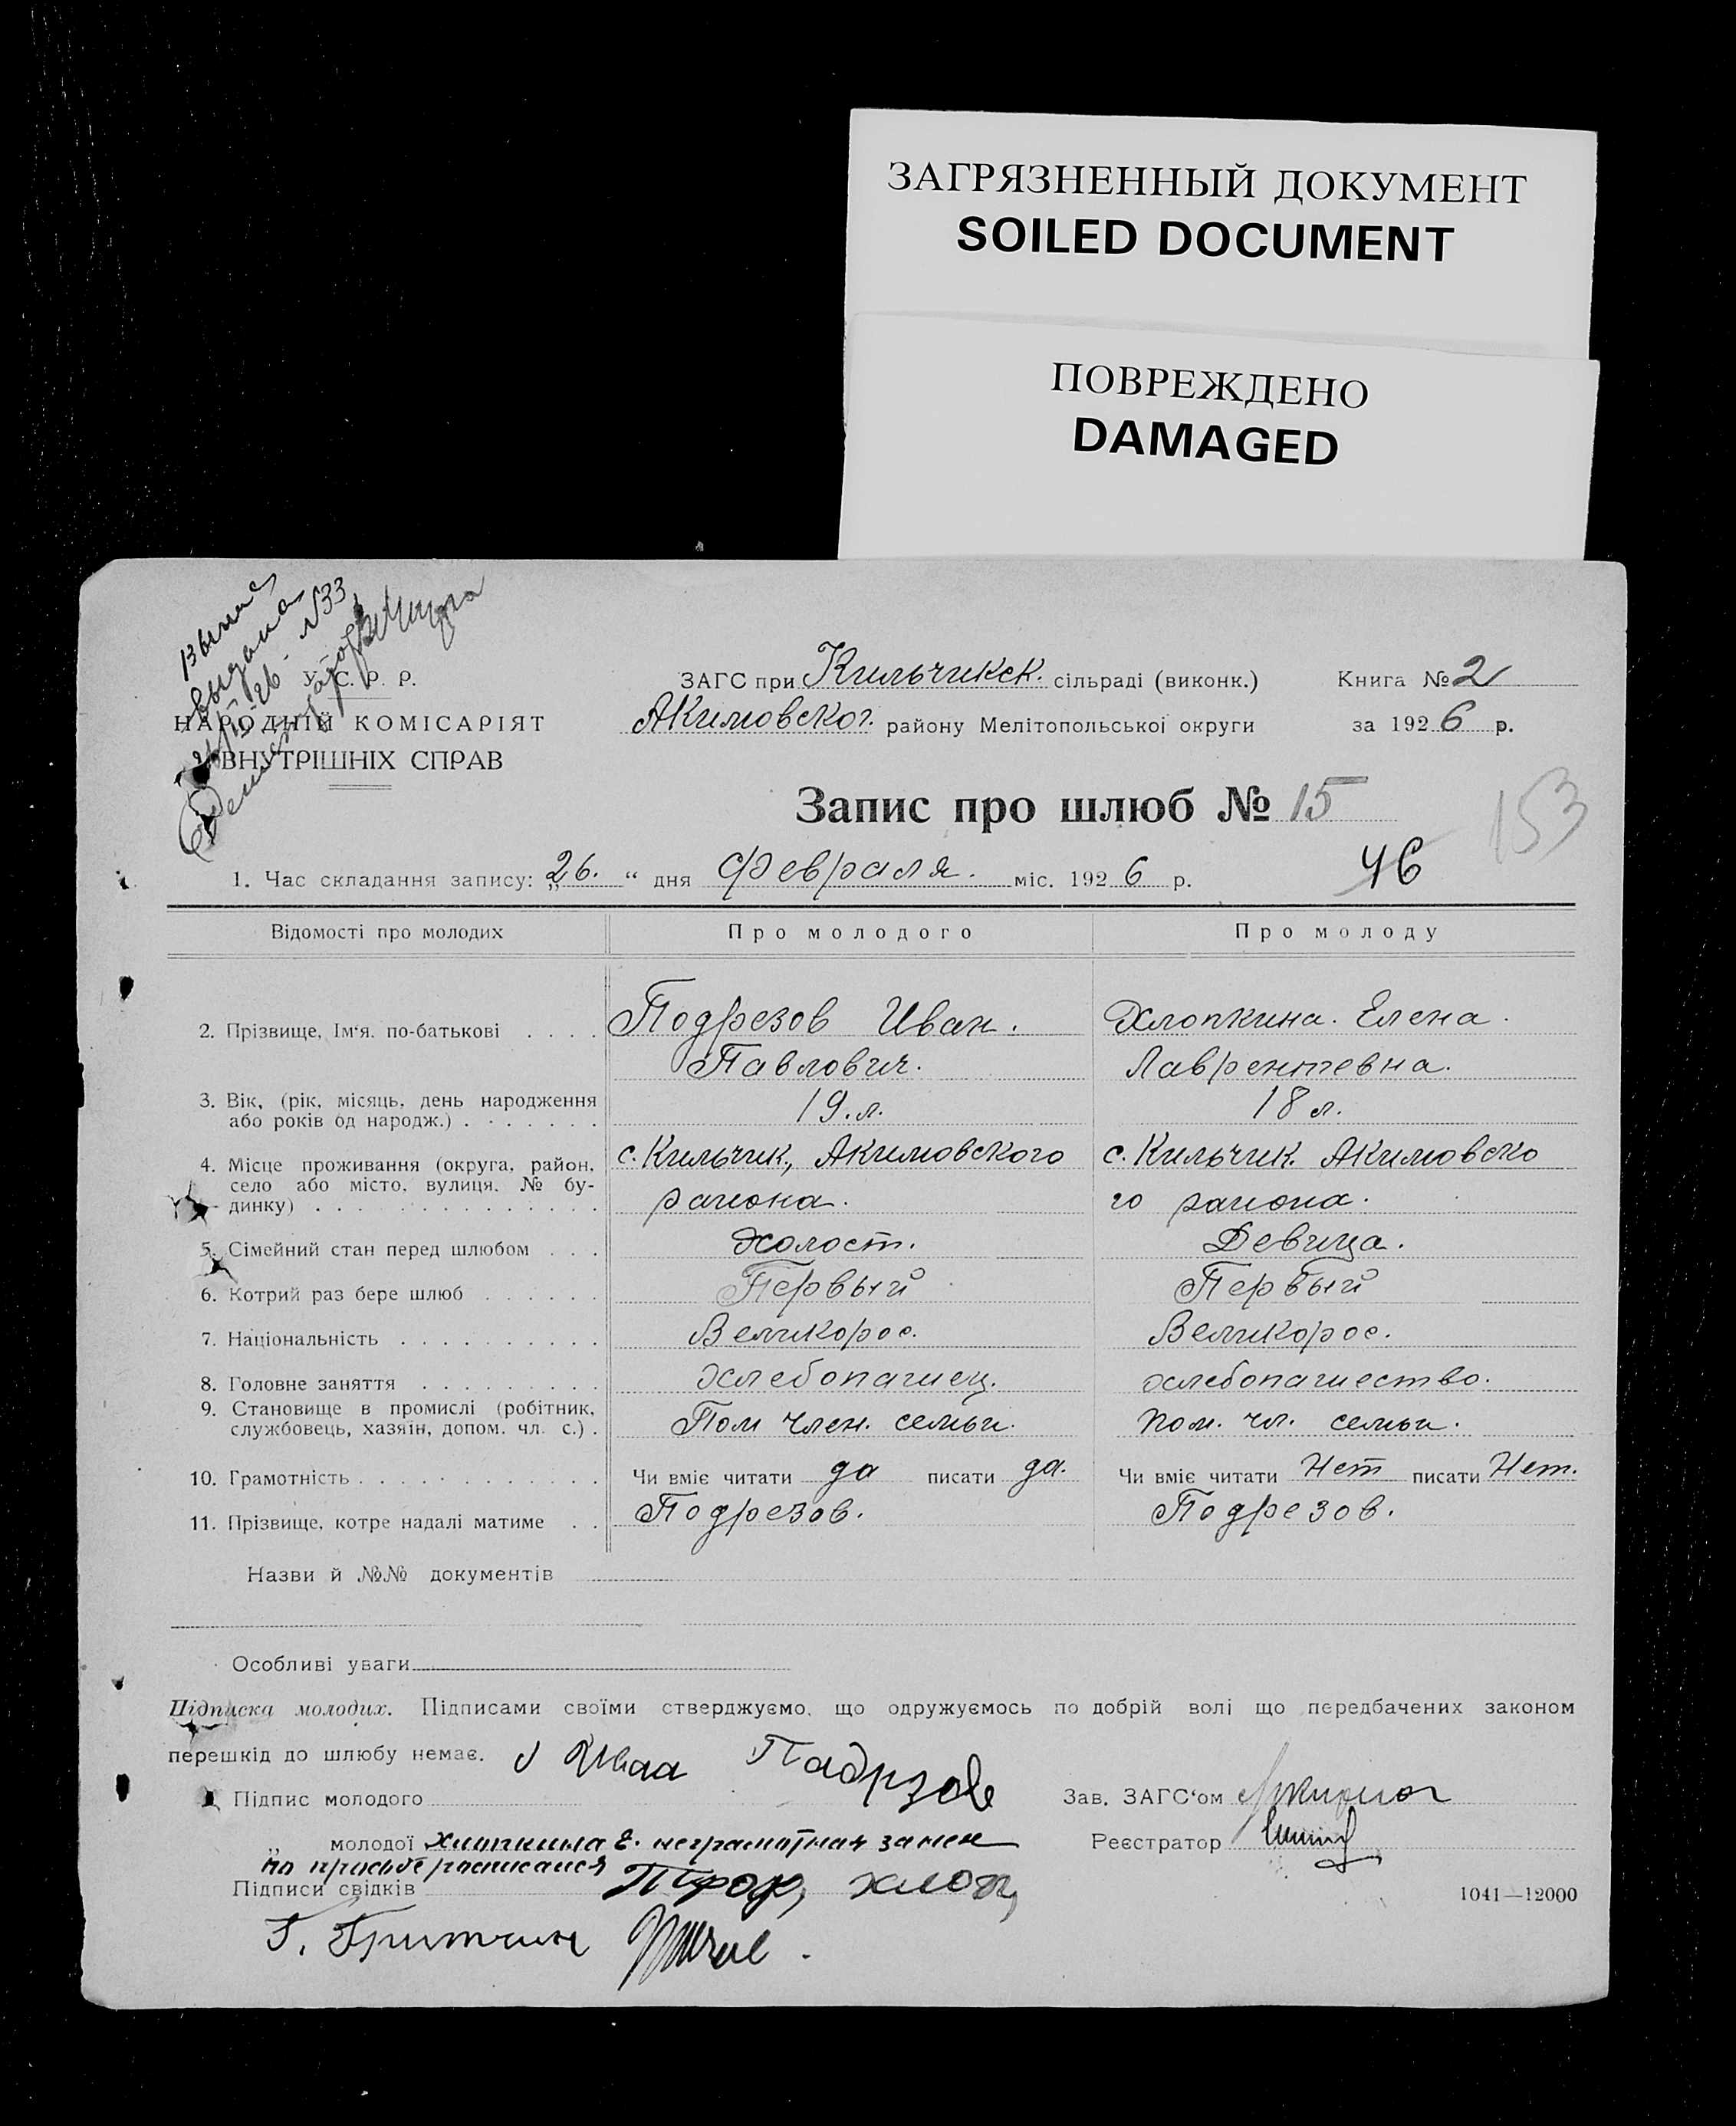 ЗАГРЯЗНЕННЫЙ ДОКУМЕНТ
SOILED DOCUMENT
ПОВРЕЖДЕНО
DAMAGED
выпис
выдана
N33
У. С. Р. Р.
НАРОДНІЙ КОМІСАРІЯТ
ВНУТРІШНІХ СПРАВ
ЗАГС при Кильчикск. сільраді (виконк.) Книга № 2
Акимовског. району Мелітопольської округи за 1926 р.
Запис про шлюб № 15
153
46
1. Час складання запису: „26.“ дня февраля. міс. 1926 р.
Відомості про молодих Про молодого Про молоду
2. Прізвище, Ім'я, по-батькові . . . . Подрезов Иван. Хлопкина. Елена.
Павлович. Лаврентевна.
3. Вік, (рік, місяць, день народження
або років од народж.) . . . . . . 19.л. 18 л.
4. Місце проживання (округа, район, с. Кильчик, Акимовского с. Кильчик. Акимовско
село або місто, вулиця, № бу-
динку) . . . . . . . . . . . . . района. го района.
5. Сімейний стан перед шлюбом . . . Холост. Девица.
6. Котрий раз бере шлюб . . . . . . Первый Первый
7. Національність . . . . . . . . . . Великорос. Великорос.
8. Головне заняття . . . . . . . . . хлебопашец. хлебопашество.
9. Становище в промислі (робітник,
службовець, хазяїн, допом. чл. с.) . Пом член. семьи. пом. чл. семьи.
10. Грамотність . . . . . . . . . . . . Чи вміє читати да писати да. Чи вміє читати Нет писати Нет.
11. Прізвище, котре надалі матиме . . Подрезов. Подрезов.
Назви й №№ документів
Особливі уваги
Підписка молодих. Підписами своїми стверджуємо, що одружуємось по добрій волі що передбачених законом
перешкід до шлюбу немає.
Підпис молодого Зав. ЗАГС'ом
„ молодої Е. неграмотная Реєстратор
по просьбе росписался
Підписи свідків
1041—12000